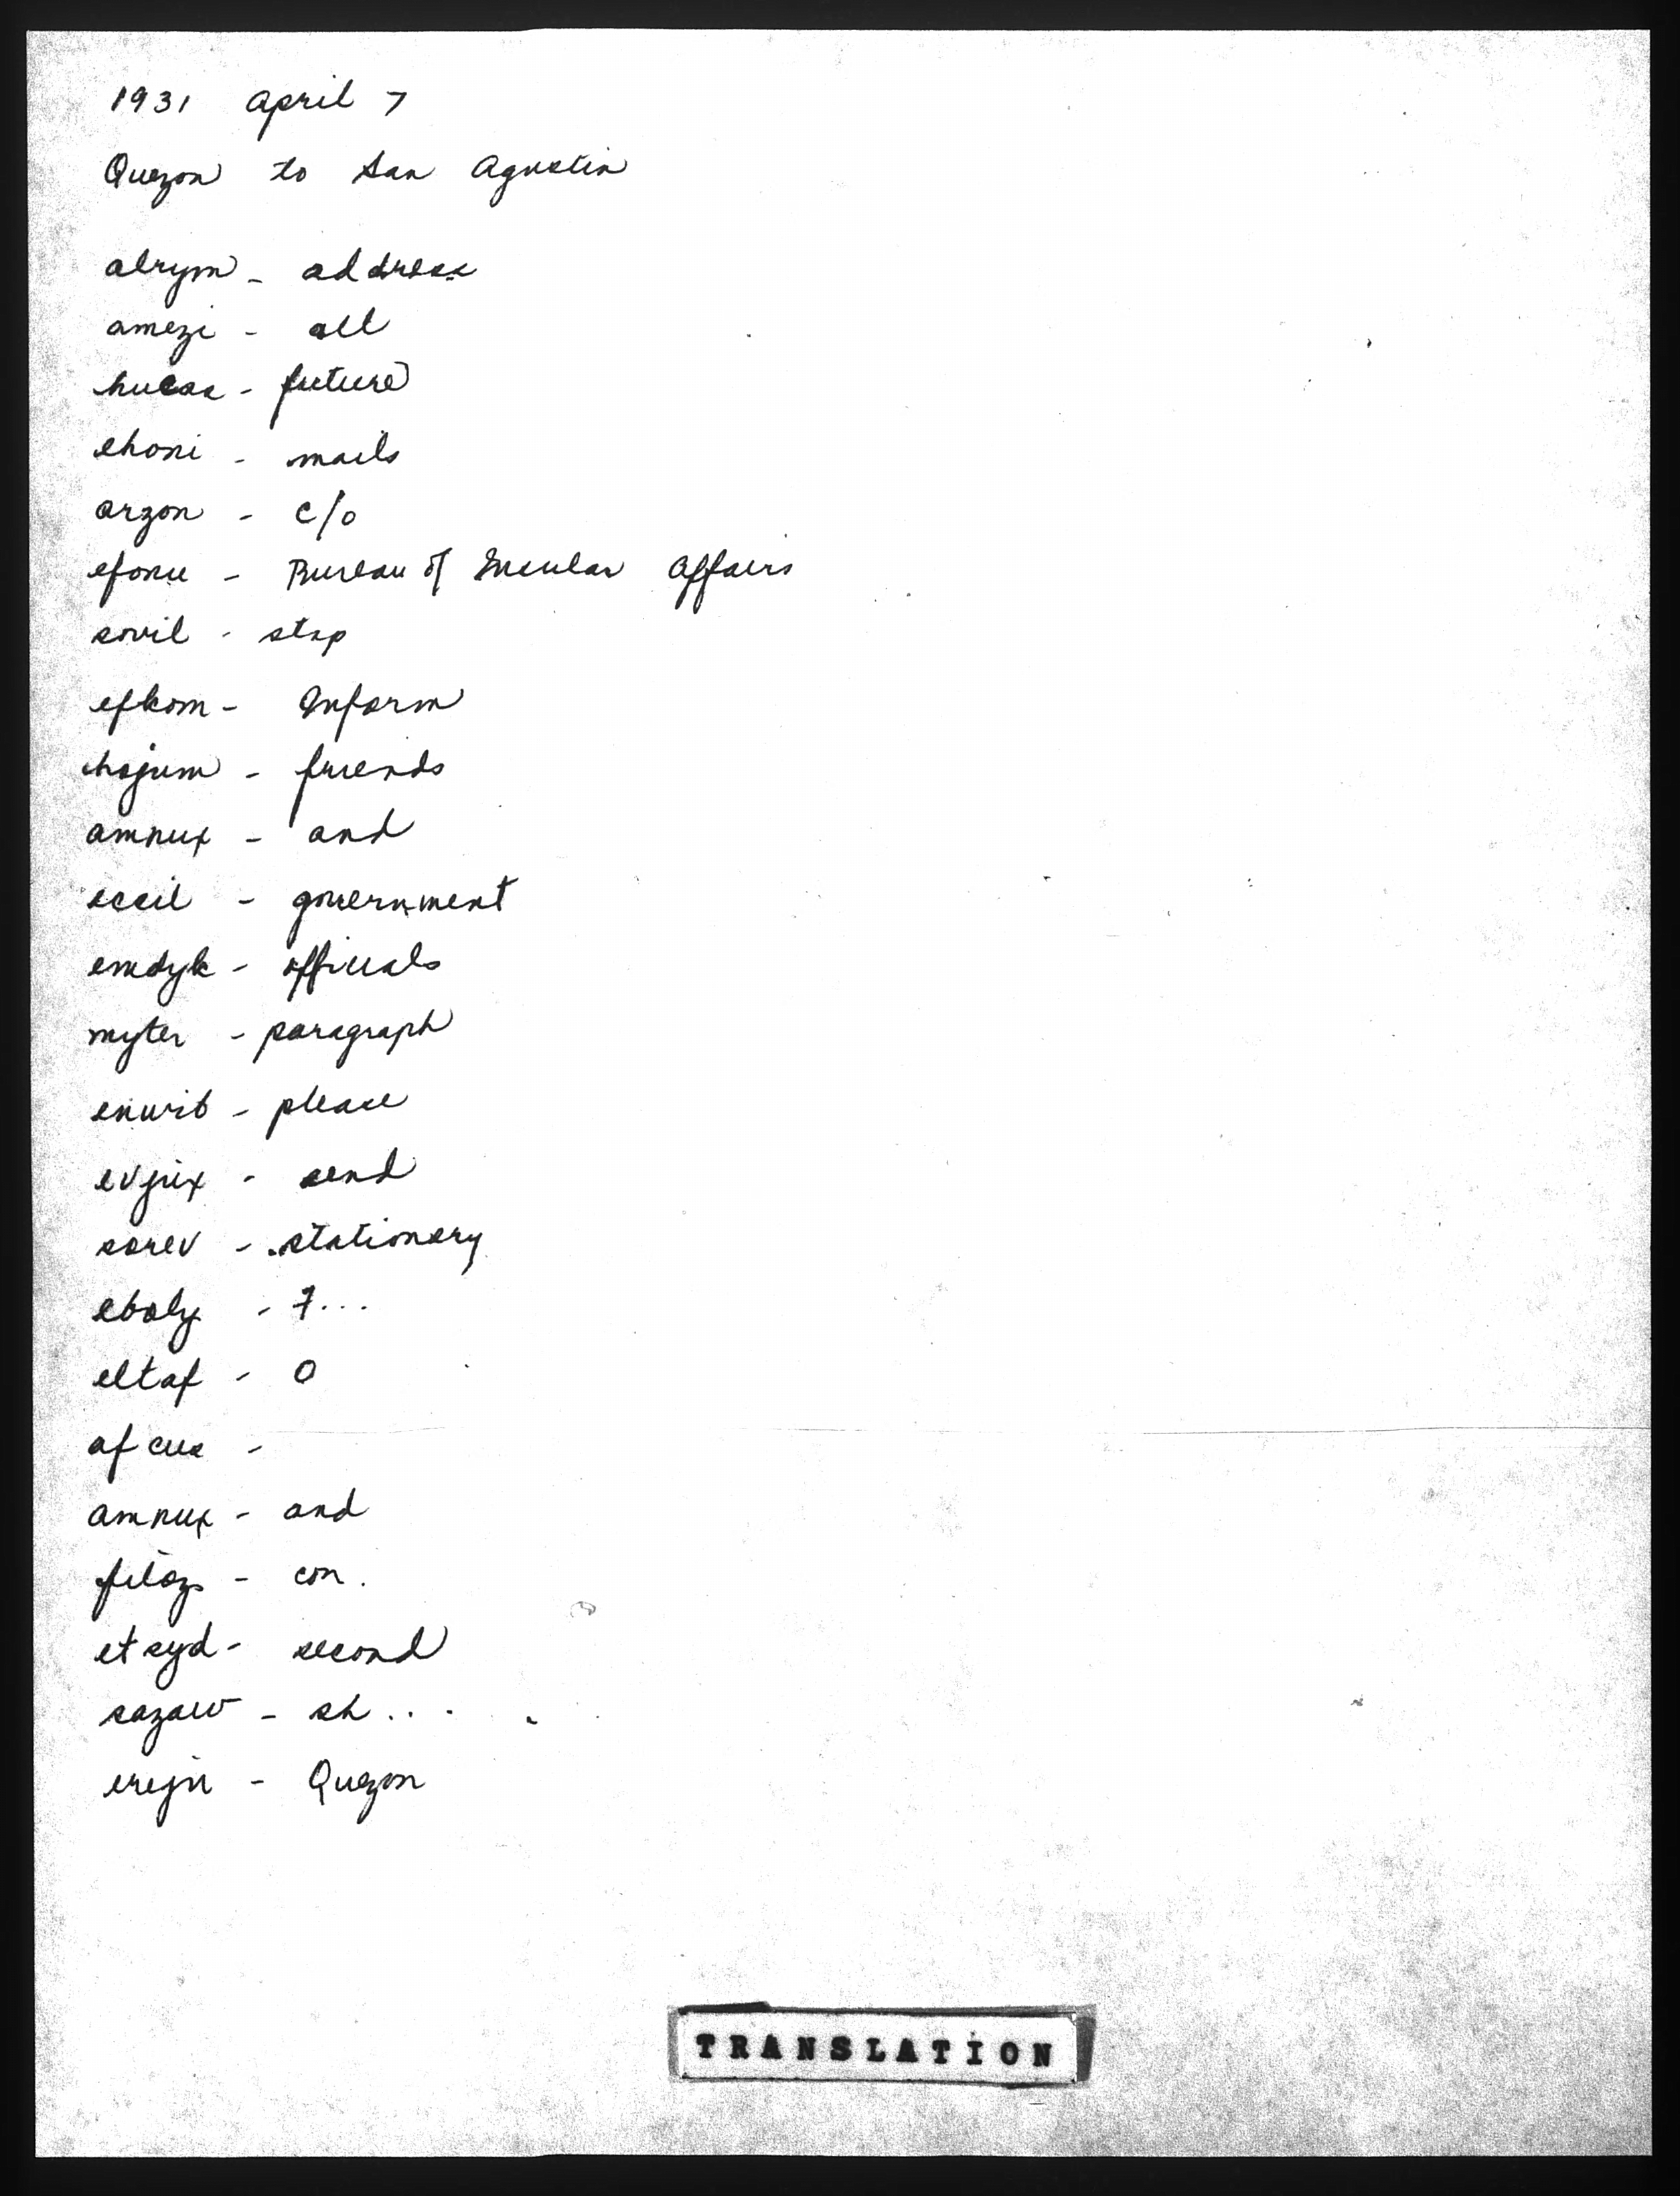 1931 April 7
Quezon to San Agustin
alrym - address
amezi - all
hucas - future
ehoni - mails
arzon - c/o
efonu - Bureau of Insular Affairs
sovil - stop
efkom - Inform
hojum - friends
amnux - and
eccil - government
emdyk - officials
myter - paragraph
enwib - please
evjix - send
sorev - stationary
eboly - 7...
eltaf - 0
afcus -
amnux - and
filoz - con.
etsyd - second
sazaw - sh...
erejn - Quezon
TRANSLATION